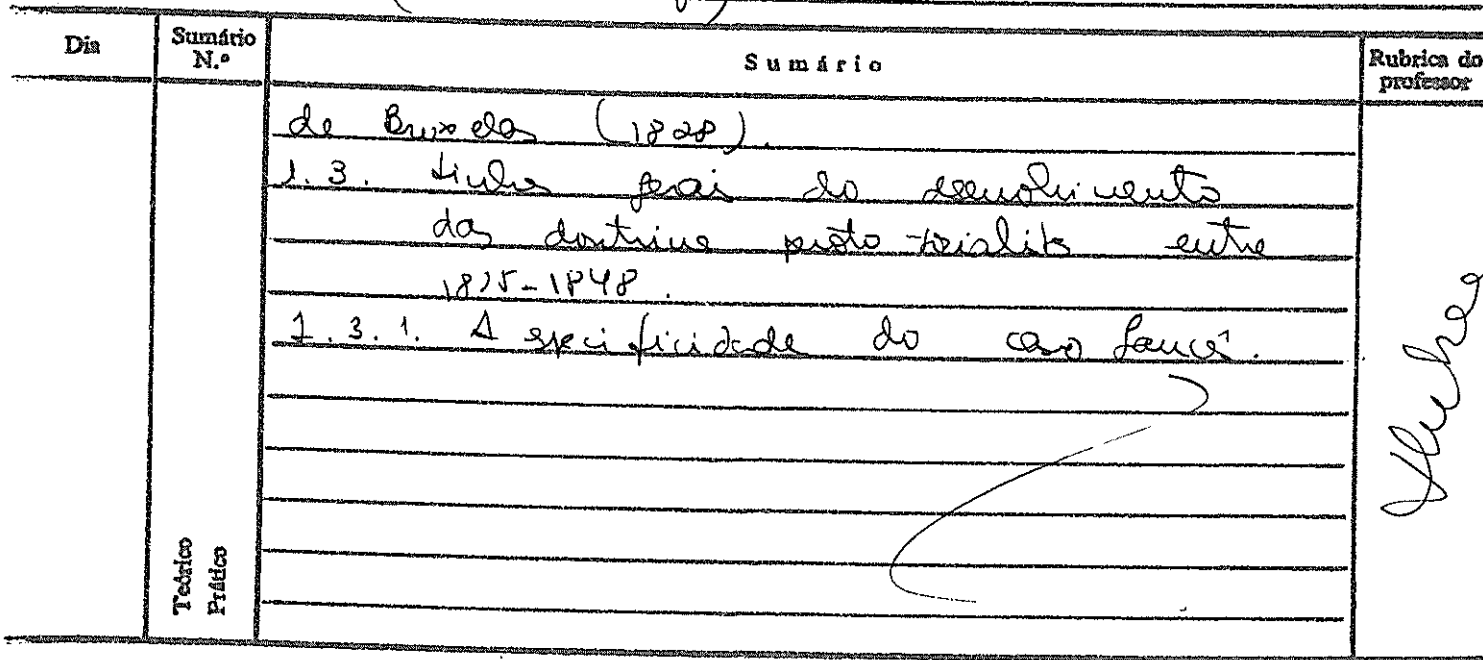 Dia
Sumário N.º
Sumário
Rubrica do professor
de Bruxelas (1828).
1.3. Linhas gerais do desenvolvimento
das doutrinas proto-socialistas entre
1815-1848.
1.3.1. A especificidade do caso francês.
Teórico
Prático